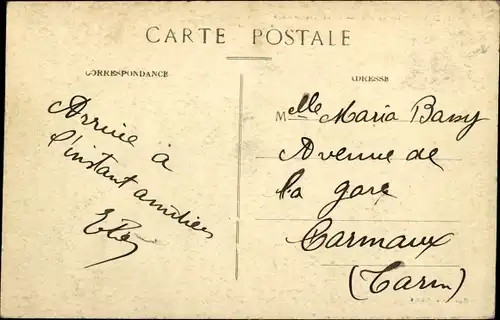 CARTE POSTALE
CORRESPONDANCE
Arrivée à
l'instant amitiés
ADRESSE
Melle Maria Bassy
Avenue de
la gare
Carmaux
(Tarn)